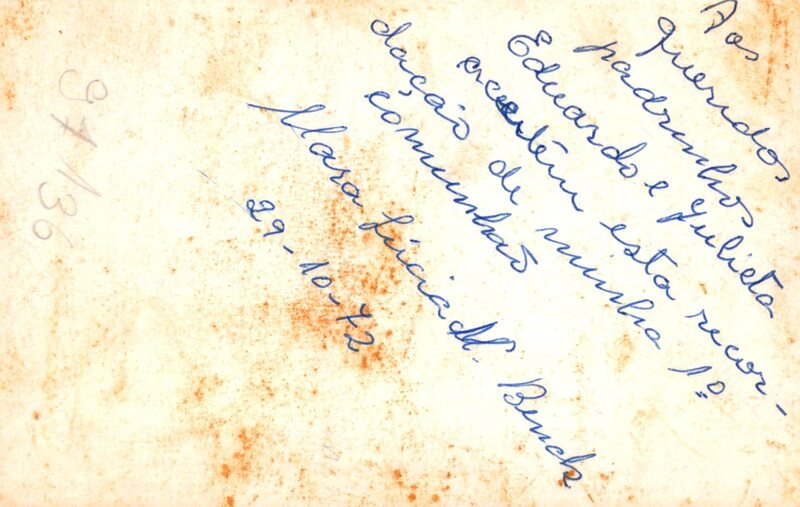 Aos
queridos
padrinhos
Eduardo e Julieta
esta recor-
dação de minha 1º
comunhão
Mara Lúcia M. Benck
29-10-72
37136